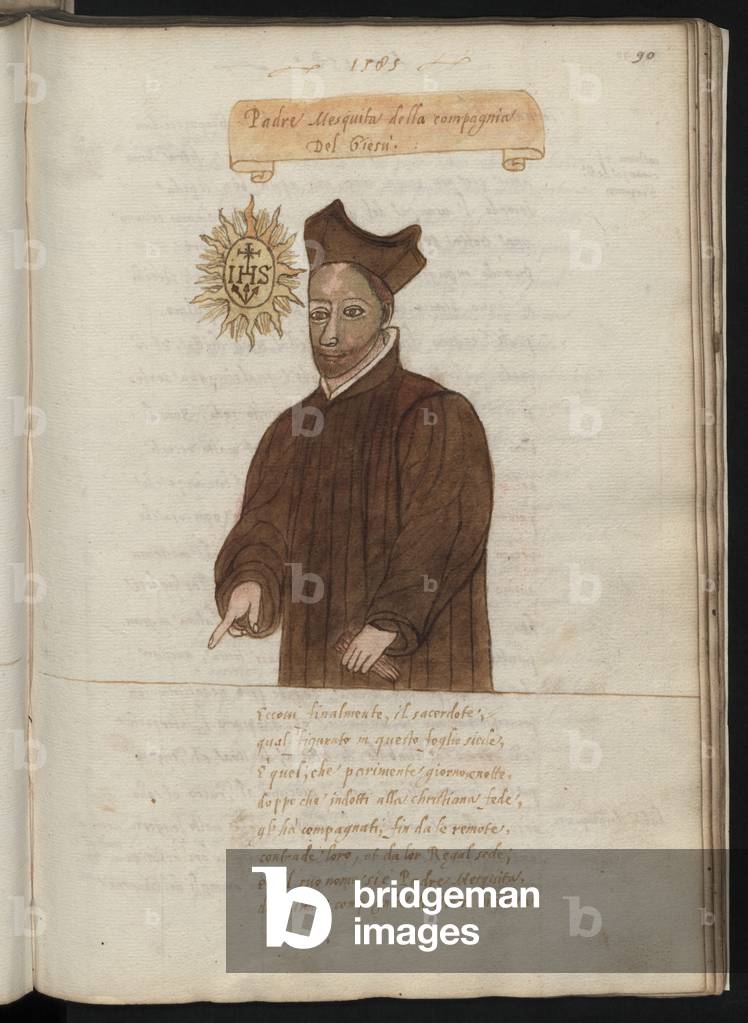 1585
90
Padre Mesquita della compagnia
Del Giesù.
IHS
Eccoui finalmente, il sacerdote,
qual figurato in questo foglio siede,
E quel, che parimente giorno, e notte,
doppo che indotti alla christiana fede,
gl' hà compagnati, fin da le remote,
contrade loro, et da lor Regal sede,
suo nome si è Padre Mesquita,
bridgeman
images